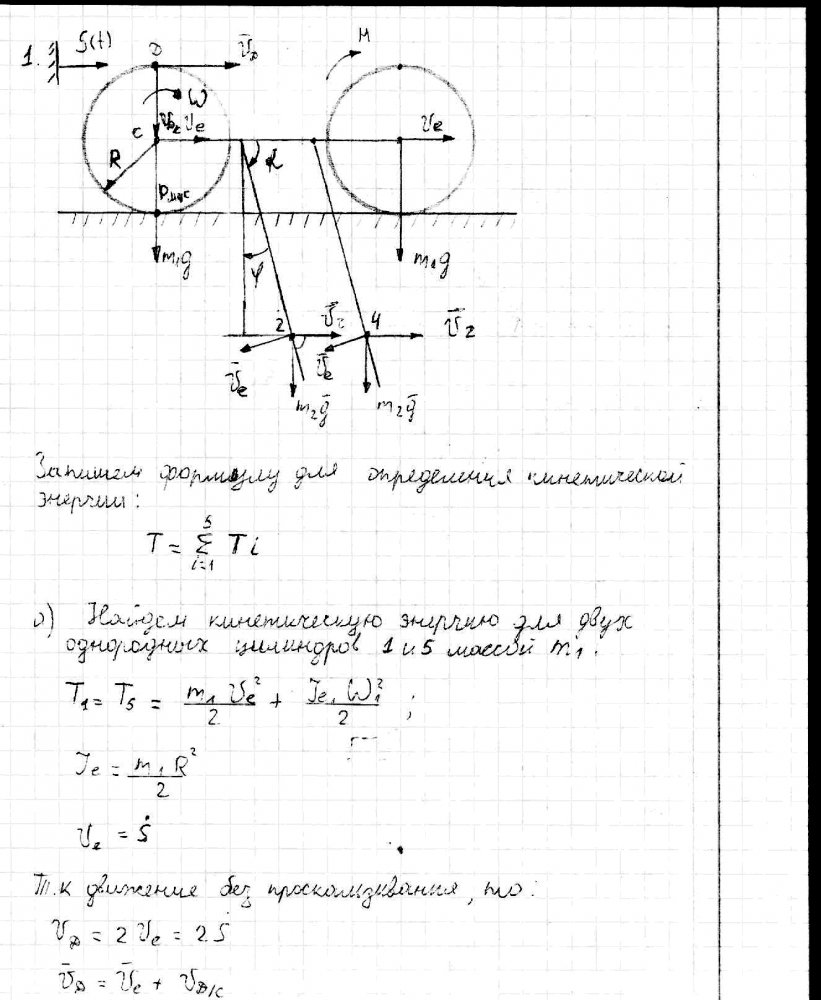 1.
S(t)
D
v̄_D
M
ω
C
v_e
v_e
R
α
m₁g
m₁g
φ
2
v̄_r
4
v̄_r
v̄_e
v̄_e
m₂ḡ
m₂ḡ
Запишем формулу для определения кинетической
энергии:
T = Σ_{i=1}^{5} Ti
а) Найдем кинетическую энергию для двух
однородных цилиндров 1 и 5 массой m₁.
T₁ = T₅ = m₁ v_c²/2 + J_{c1} ω₁²/2 ;
J_c = m₁R²/2
v_c = Ṡ
Т.к движение без проскальзывания, то:
v_D = 2 v_c = 2Ṡ
v̄_D = v̄_c + v_{D/C}